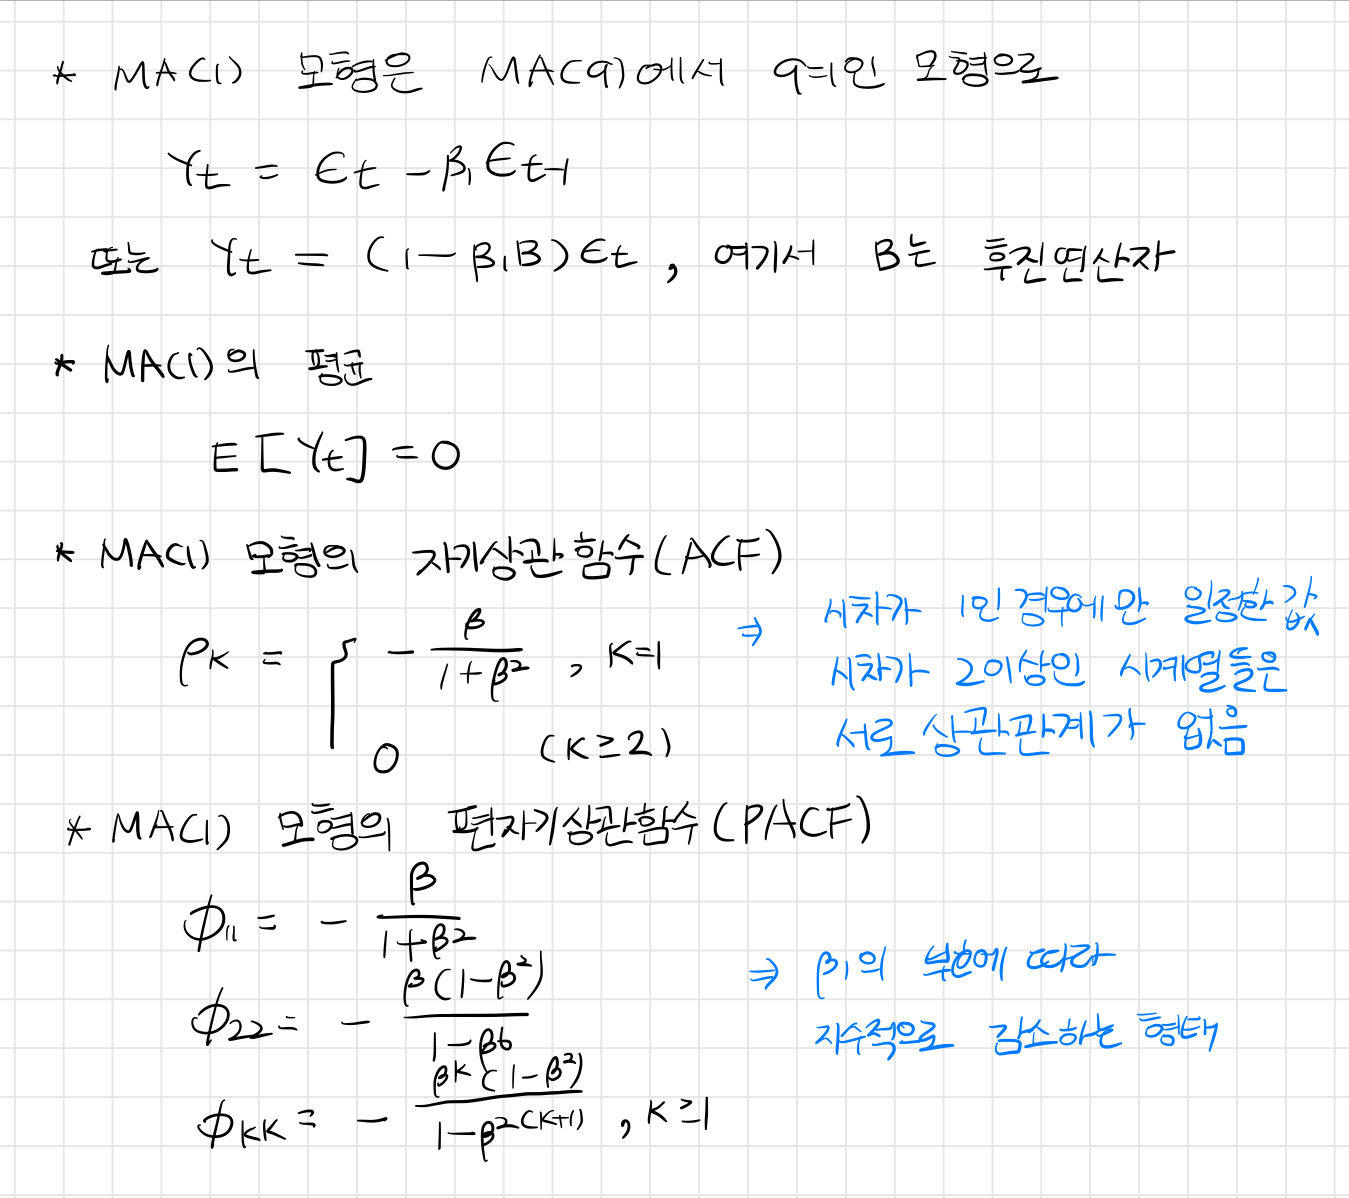 * MA(1) 모형은 MA(q)에서 q=1인 모형으로
Yt = ϵt - β₁ϵt-1
또는 Yt = (1-β₁B)ϵt , 여기서 B는 후진연산자
* MA(1)의 평균
E[Yt] = 0
* MA(1) 모형의 자기상관함수(ACF)
ρK = { - β / (1+β²) , K=1
0 (K≥2)
⇒ 시차가 1인 경우에만 일정한 값
시차가 2이상인 시계열들은
서로 상관관계가 없음
* MA(1) 모형의 편자기상관함수(PACF)
ϕ₁₁ = - β / (1+β²)
ϕ₂₂ = - β(1-β²) / (1-β⁶)
ϕKK = - β^K (1-β²) / (1-β^2(K+1)) , K≥1
⇒ β₁의 부호에 따라
지수적으로 감소하는 형태